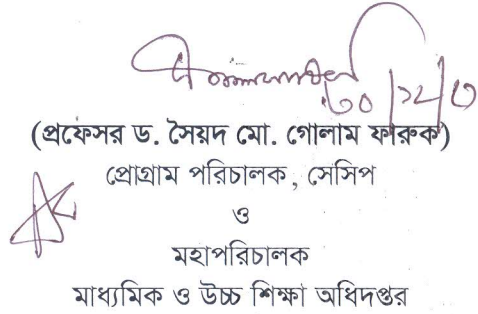 ৩০/১২/৩
(প্রফেসর ড. সৈয়দ মো. গোলাম ফারুক)
প্রোগ্রাম পরিচালক, সেসিপ
ও
মহাপরিচালক
মাধ্যমিক ও উচ্চ শিক্ষা অধিদপ্তর